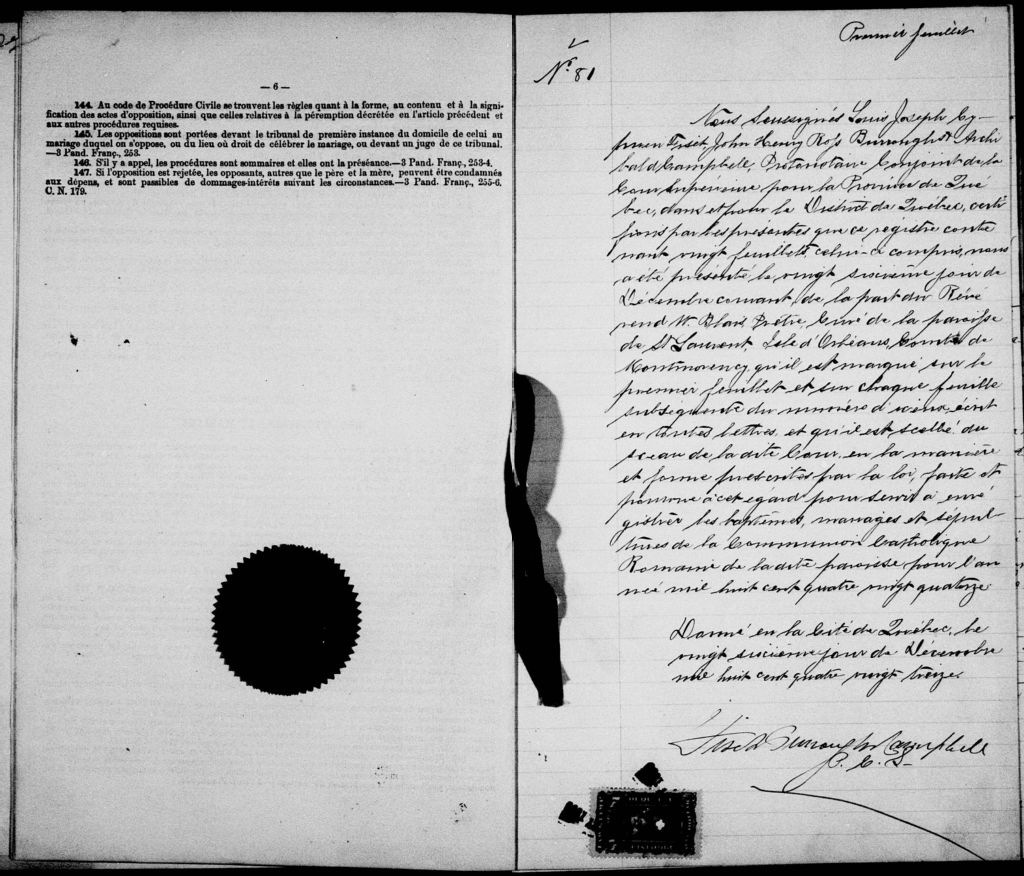 — 6 —
144. Au code de Procédure Civile se trouvent les règles quant à la forme, au contenu et à la signi-
fication des actes d'opposition, ainsi que celles relatives à la péremption décrétée en l'article précédent et
aux autres procédures requises.
145. Les oppositions sont portées devant le tribunal de première instance du domicile de celui au
mariage duquel on s'oppose, ou du lieu où droit de célébrer le mariage, ou devant un juge de ce tribunal.
—3 Pand. Franç., 253.
146. S'il y a appel, les procédures sont sommaires et elles ont la préséance.—3 Pand. Franç., 253-4.
147. Si l'opposition est rejetée, les opposants, autres que le père et la mère, peuvent être condamnés
aux dépens, et sont passibles de dommages-intérêts suivant les circonstances.—3 Pand. Franç., 255-6.
C. N. 179.
Premier feuillet
No. 81
Nous Soussignés Louis Joseph Cy-
prien Fiset, John Henry Ross Burroughs & Archi
bald Campbell, Protonotaire Conjoint de la
Cour supérieure pour la Province de Qué
bec, dans et pour le District de Québec, certi
fions par les présentes que ce registre conte
nant vingt feuillets, celui-ci compris, nous
a été présenté le vingt sixième jour de
Décembre courant, de la part du Révé
rend W. Blais, Prêtre, Curé de la paroisse
de St Laurent, Isle d'Orléans, Comté de
Montmorency, qu'il est marqué sur le
premier feuillet et sur chaque feuille
subséquente du numéro d'iceux, écrit
en toutes lettres, et qu'il est scellé du
sceau de la dite Cour, en la manière
et forme prescrites par la loi, faite et
pourvue à cet égard pour servir à enré
gistrer les baptêmes, mariages et sépul
tures de la Communion Catholique
Romaine de la dite paroisse pour l'an
née mil huit cent quatre vingt quatorze.
Donné en la Cité de Québec, le
vingt sixième jour de Décembre
mil huit cent quatre vingt treize.
Fiset Burroughs Campbell
P. C. S.